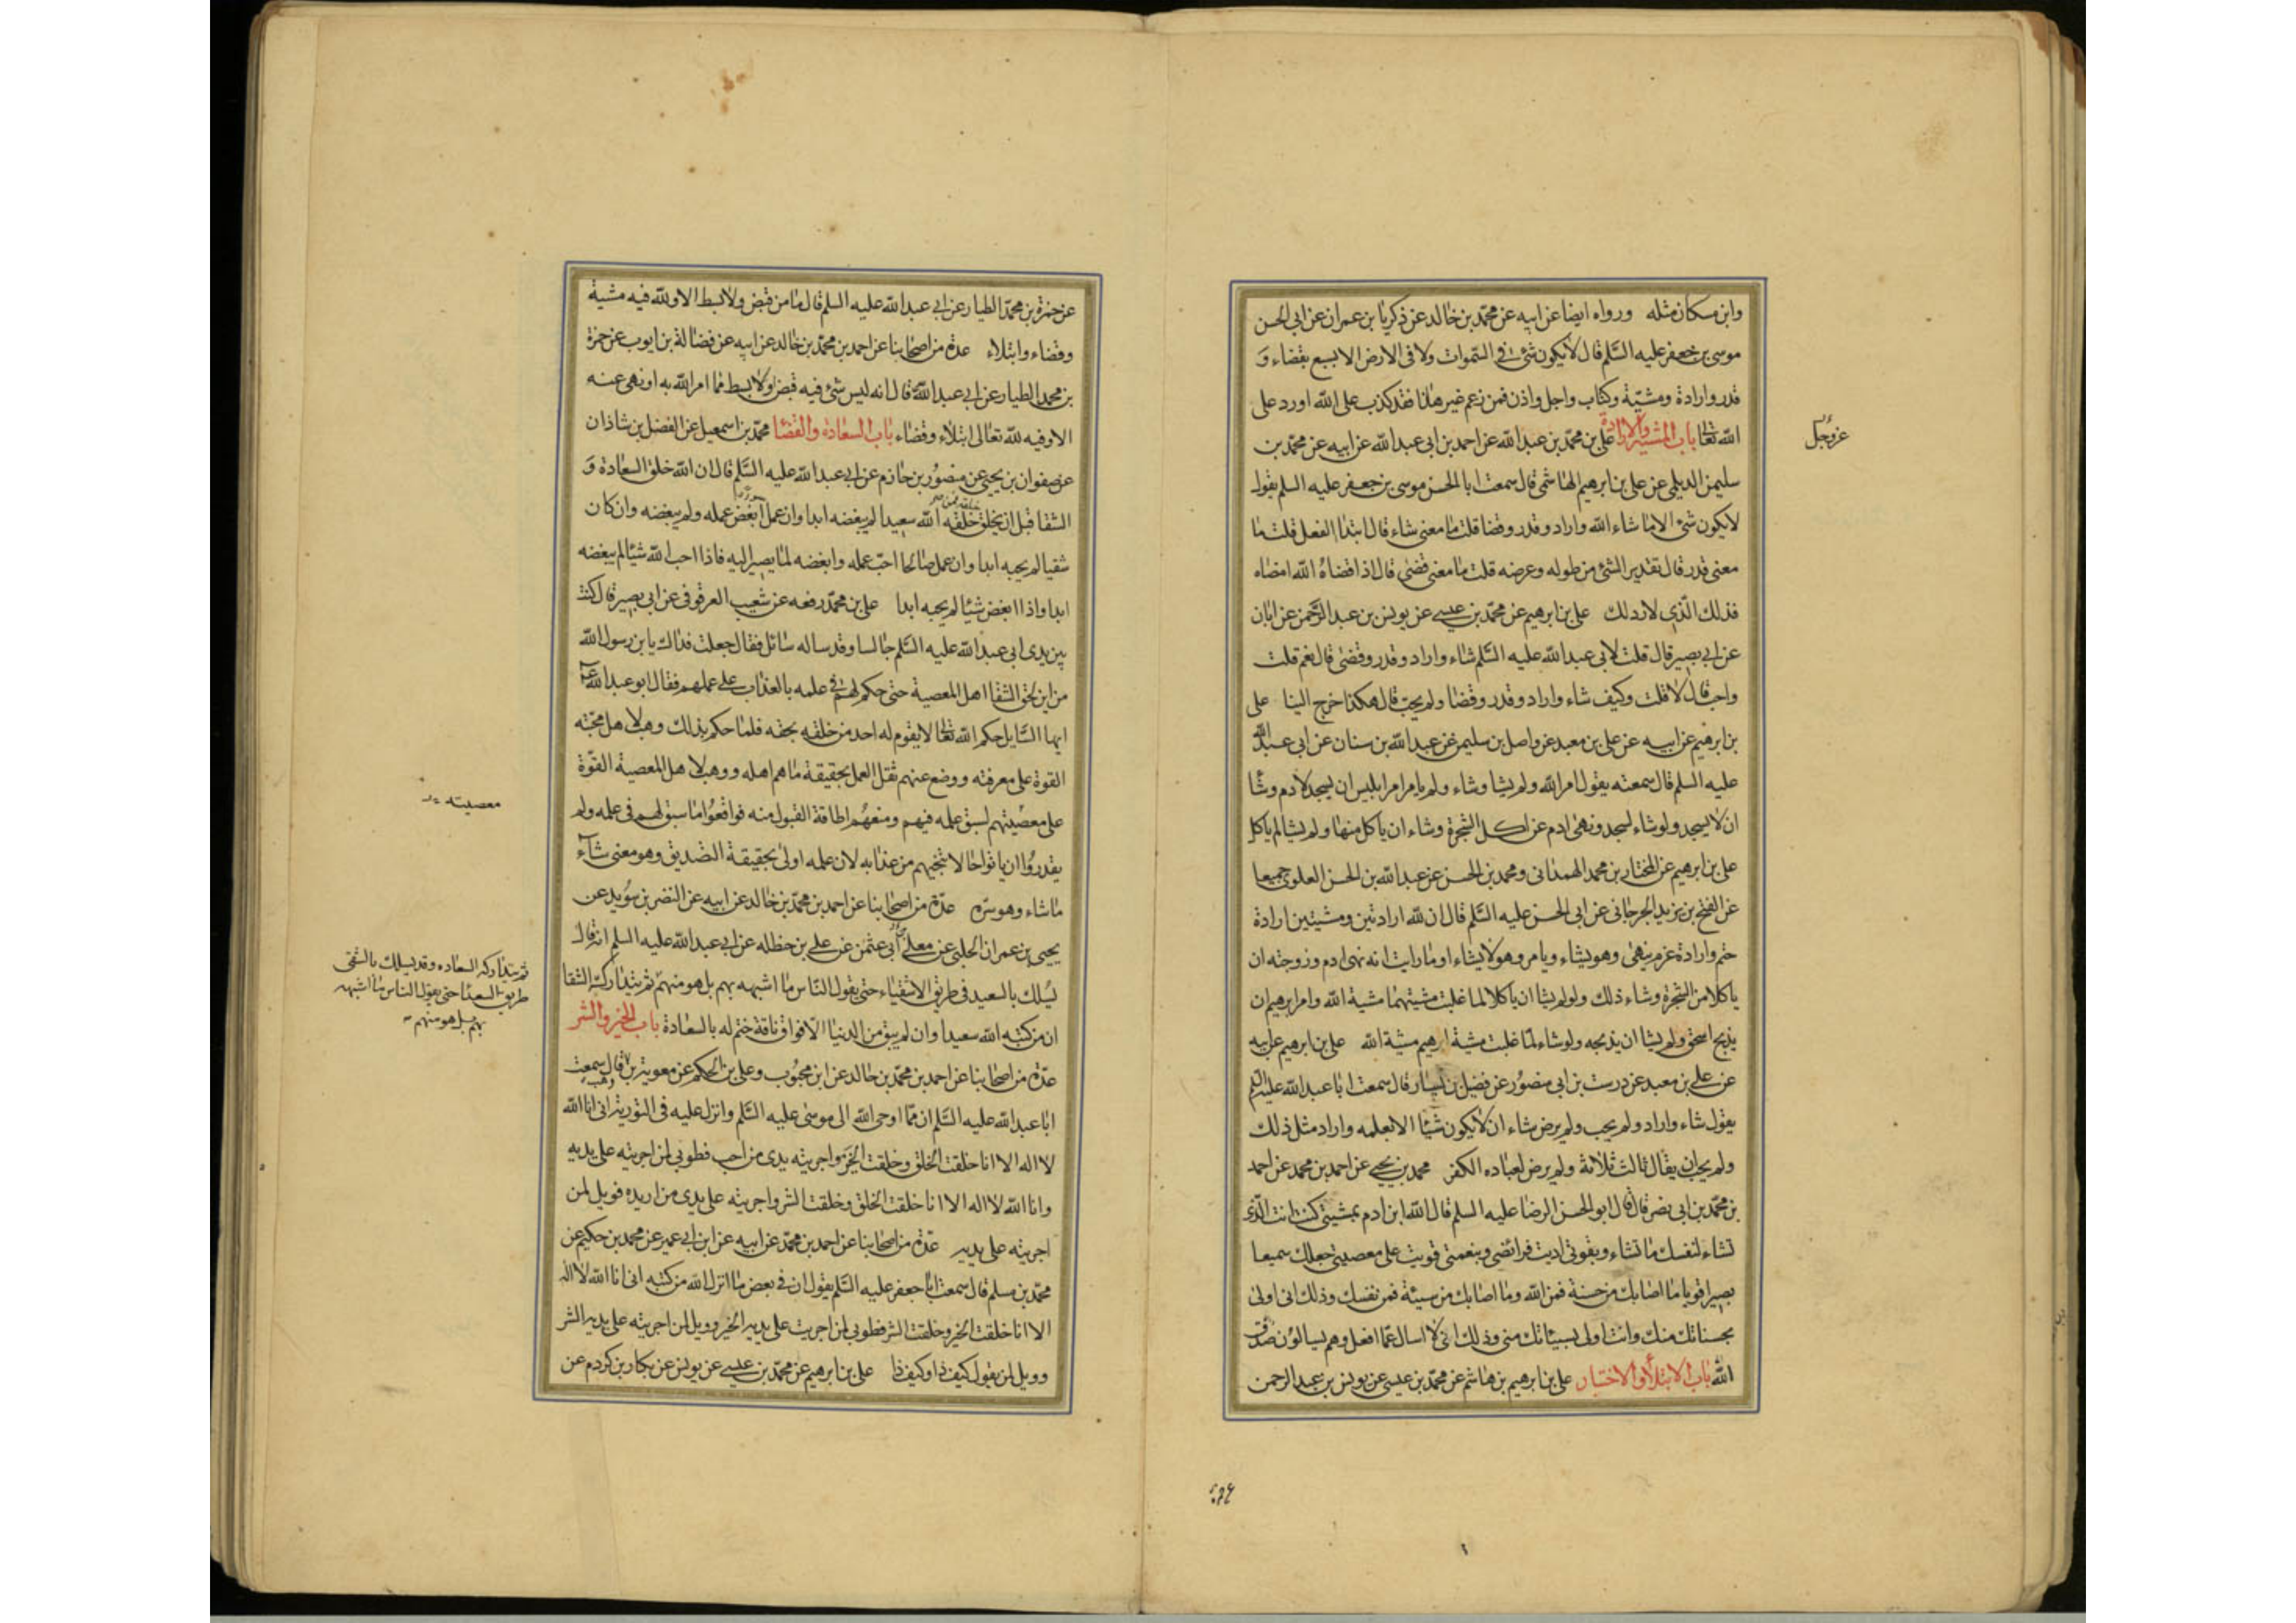 وابن مسكان مثله ورواه ايضا عن ابيه عن محمّد بن خالد عن زكريا بن عمران عن ابى الحسن
موسى بن جعفر عليه السَّلم قال لا يكون شئ فى السّموات ولا فى الارض الا بسبع بقضاء و
قدر وارادة ومشيّة وكتاب واجل واذن فمن زعم غير هذا فقد كذب على اللّه او رد على
اللّه تعالى باب المشية والارادة على بن محمّد بن عبد اللّه عن احمد بن ابى عبد اللّه عن ابيه عن محمّد بن
عزوجل
سليمن الديلمى عن على بن ابرهيم الهاشمى قال سمعت ابا الحسن موسى بن جعفر عليه السلم يقول
لا يكون شئ الا ما شاء اللّه واراد وقدر وقضا قلت ما معنى شاء قال ابتدا الفعل قلت ما
معنى قدر قال تقدير الشئ من طوله وعرضه قلت ما معنى قضى قال اذا قضاه اللّه امضاه
فذلك الّذى لا رد لك على بن ابرهيم عن محمّد بن عيسى عن يونس بن عبد الرّحمن عن ابان
عن ابى بصير قال قلت لابى عبد اللّه عليه السَّلم شاء واراد وقدر وقضى قال نعم قلت
واحب قال لا قلت وكيف شاء واراد وقدر وقضا ولم يحبّ قال هكذا خرج الينا على
بن ابرهيم عن ابيه عن على بن معبد عن واصل بن سليم عن عبد اللّه بن سنان عن ابى عبد اللّه
عليه السلم قال سمعته يقول امر اللّه ولم يشا وشاء ولم يامر امر ابليس ان يسجد لادم وشا
ان لا يسجد ولو شاء لسجد ونهى ادم عن اكل الشجرة وشاء ان ياكل منها ولم يشا لم ياكل
على بن ابرهيم عن المختار بن محمد الهمدانى ومحمد بن الحسن عن عبد اللّه بن الحسن العلوى جميعا
عن الفتح بن يزيد الجرجانى عن ابى الحسن عليه السَّلم قال ان للّه ارادتين ومشيتين ارادة
حتم وارادة عزم ينهى وهو يشاء ويامر وهو لا يشاء او ما رايت انه نهى ادم وزوجته ان
ياكلا من الشجرة وشاء ذلك ولو لم يشا ان ياكلا لما غلبت مشيتهما مشية اللّه وامر ابرهيم ان
يذبح اسحق ولم يشا ان يذبحه ولو شاء لما غلبت مشية ابرهيم مشية اللّه على بن ابرهيم عن ابيه
عن على بن معبد عن درست بن ابى منصور عن فضيل بن يسار قال سمعت ابا عبد اللّه عليه السلم
يقول شاء واراد ولم يحب ولم يرض شاء ان لا يكون شيئا الا بعلمه واراد مثل ذلك
ولم يحب ان يقال ثالث ثلاثة ولم يرض لعباده الكفر محمد بن يحيى عن احمد بن محمد عن احمد
بن محمّد بن ابى نصر قال قال ابو الحسن الرضا عليه السلم قال اللّه ابن ادم بمشيتى كنت انت الّذى
تشاء لنفسك ما تشاء وبقوتى اديت فرائضى وبنعمتى قويت على معصيتى جعلتك سميعا
بصيرا قويا ما اصابك من حسنة فمن اللّه وما اصابك من سيئة فمن نفسك وذلك انى اولى
بحسناتك منك وانت اولى بسيئاتك منى وذلك انى لا اسال عما افعل وهم يسالون صدق
اللّه باب الابتلاء والاختبار على بن ابرهيم بن هاشم عن محمّد بن عيسى عن يونس بن عبد الرحمن
عن حمزة بن محمّد الطيار عن ابى عبد اللّه عليه السلم قال ما من قبض ولا بسط الا وللّه فيه مشية
وقضاء وابتلاء عدة من اصحابنا عن احمد بن محمّد بن خالد عن ابيه عن فضالة بن ايوب عن حمزة
بن محمد الطيار عن ابى عبد اللّه قال انه ليس شئ فيه قبض ولا بسط مما امر اللّه به او نهى عنه
الا وفيه للّه تعالى ابتلاء وقضاء باب السعادة والقضا محمّد بن اسمعيل عن الفضل بن شاذان
عن صفوان بن يحيى عن منصور بن حازم عن ابى عبد اللّه عليه السَّلم قال ان اللّه خلق السعادة و
الشقا قبل ان يخلق خلقه اللّه سعيدا لم يبغضه ابدا وان عمل ابغض عمله ولم يبغضه وان كان
شقيا لم يحبه ابدا وان عمل صالحا احبّ عمله وابغضه لما يصير اليه فاذا احب اللّه شيئا لم يبغضه
ابدا واذا ابغض شيئا لم يحبه ابدا على بن محمّد رفعه عن شعيب العرقوفى عن ابى بصير قال كنت
بين يدى ابى عبد اللّه عليه السَّلم جالسا وقد ساله سائل فقال جعلت فداك يا بن رسول اللّه
من اين لحق الشقا اهل المعصية حتى حكم لهم فى علمه بالعذاب على عملهم فقال ابو عبد اللّه ع
ايها السّايل حكم اللّه تعالى لا يقوم له احد من خلقه بحقه فلما حكم بذلك وهب لاهل محبّته
القوة على معرفته ووضع عنهم ثقل العمل بحقيقة ما هم اهله ووهب لاهل المعصية القوّة
على معصيتهم لسبق علمه فيهم ومنعهم اطاقة القبول منه فواقعوا ما سبق لهم فى علمه ولم
معصيته
يقدروا ان ياتوا حالا تنجيهم من عذابه لان علمه اولى بحقيقة التصديق وهو معنى شاء
ما شاء وهو سرّه عدّة من اصحابنا عن احمد بن محمّد بن خالد عن ابيه عن النضر بن سُويد عن
يحيى بن عمران الحلبى عن معلى ابى عثمن عن على بن حنظله عن ابى عبد اللّه عليه السلم انه قال
يُسلك بالسعيد فى طريق الاشقياء حتى يقول النّاس ما اشبهه بهم بل هو منهم ثم يتداركه الشقا
ثم يتداركه السعاده وقد يسلك بالشقى
طريق السعدا حتى يقول الناس ما اشبهه
بهم بل هو منهم
ان من كتبه اللّه سعيدا وان لم يبق من الدنيا الّا فواق ناقة ختم له بالسعادة باب الخير والشر
عدّة من اصحابنا عن احمد بن محمّد بن خالد عن ابن محبُوب وعلى بن الحكم عن معوية بن وهب قال سمعت
ابا عبد اللّه عليه السَّلم ان ممّا اوحى اللّه الى موسى عليه السَّلم وانزل عليه فى التورية انى انا اللّه
لا اله الا انا خلقت الخلق وخلقت الخير واجريته يدى من احب فطوبى لمن اجريته على يديه
وانا اللّه لا اله الا انا خلقت الخلق وخلقت الشر واجريته على يدى من اريده فويل لمن
اجريته على يديه عدّة من اصحابنا عن احمد بن محمّد عن ابيه عن ابن ابى عمير عن محمد بن حكيم عن
محمّد بن مسلم قال سمعت ابا جعفر عليه السَّلم يقول ان فى بعض ما انزل اللّه من كتبه انى انا اللّه لا اله
الا انا خلقت الخير وخلقت الشر فطوبى لمن اجريت على يديه الخير وويل لمن اجريته على يديه الشر
وويل لمن يقول كيف ذا وكيف ذا على بن ابرهيم عن محمّد بن عيسى عن يونس عن بكار بن كردم عن